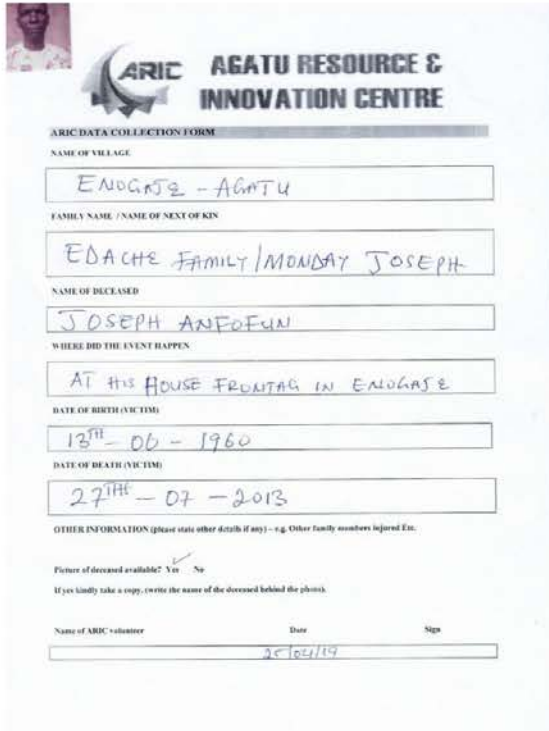 ARIC
AGATU RESOURCE &
INNOVATION CENTRE
ARIC DATA COLLECTION FORM
NAME OF VILLAGE
ENOGAJE - AGATU
FAMILY NAME / NAME OF NEXT OF KIN
EDACHE FAMILY/MONDAY JOSEPH
NAME OF DECEASED
JOSEPH ANFOFUN
WHERE DID THE EVENT HAPPEN
AT HIS HOUSE FRONTAG IN ENOGAJE
DATE OF BIRTH (VICTIM)
13TH - 06 - 1960
DATE OF DEATH (VICTIM)
27TH - 07 - 2013
OTHER INFORMATION (please state other details if any) – e.g. Other family members injured Etc.
Picture of deceased available? Yes No
If yes kindly take a copy. (write the name of the deceased behind the photo).
Name of ARIC volunteer Date Sign
25/04/19